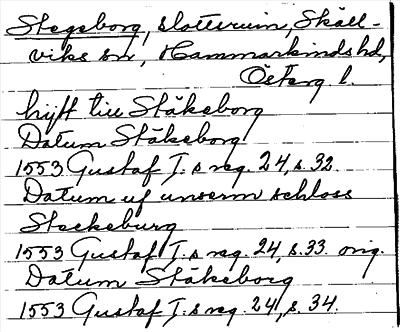 Stegeborg, slottsruin, Skäll-
viks sn, Hammarkinds hd,
Österg. l.
hijft till Stäkeborg
Datum Stäkeborg
1553 Gustaf I.s reg. 24, s. 32.
Datum uf unserm schloss
Steckeburg
1553 Gustaf I.s reg. 24, s. 33. orig.
Datum Stäkeborg
1553 Gustaf I.s reg. 24, s. 34.